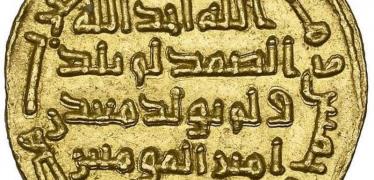 الله احد الله
الصمد لم يلد
و لم يولد معدن
امير المومنين